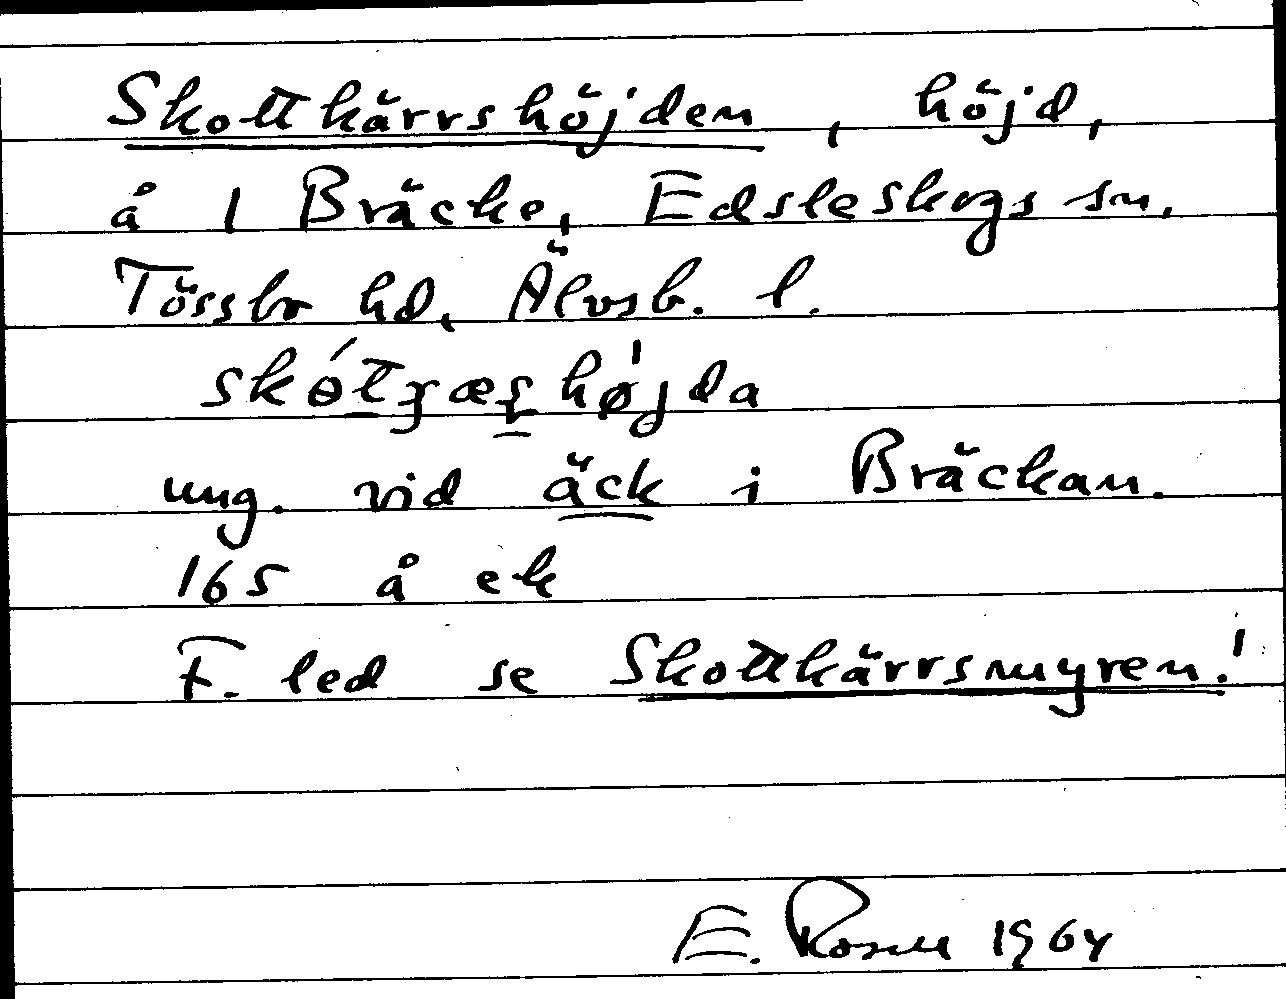 Skottkärrshöjden, höjd,
å 1 Bräcke, Edsleskogs sn.
Tössbo hd, Älvsb. l.
skótʒæʂhø̍jda
ung. vid äck i Bräckan.
165 å ek
F. led se Skottkärrsmyren!
E. Rosell 1964